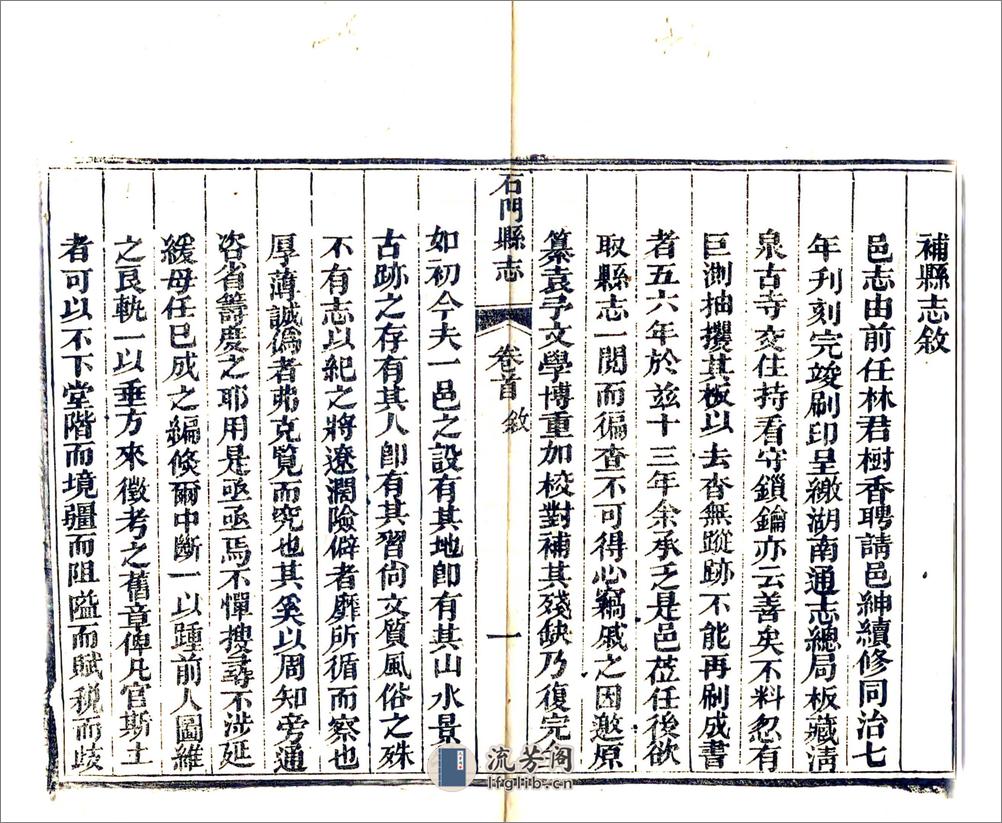 補縣志敘
邑志由前任林君樹香聘請邑紳續修同治七
年刋刻完竣刷印呈繳湖南通志總局板藏淸
泉古寺交住持看守鎖鑰亦云善矣不料忽有
巨測抽攫其板以去杳無蹤跡不能再刷成書
者五六年於兹十三年余承乏是邑莅任後欲
取縣志一閱而徧查不可得心竊戚之因邀原
纂袁子文學博重加校對補其殘缺乃復完全
石門縣志
卷首
敘
一
如初今夫一邑之設有其地卽有其山水景
古跡之存有其人卽有其習尙文質風俗之殊
不有志以紀之將遼濶險僻者靡所循而察也
厚薄誠僞者弗克覽而究也其奚以周知旁通
咨省籌度之耶用是亟亟焉不憚搜尋不涉延
緩毋任已成之編倐爾中斷一以踵前人圖維
之良軌一以垂方來徵考之舊章俾凡官斯土
者可以不下堂階而境疆而阻隘而賦税而歧
流芳阁
lfglib.cn